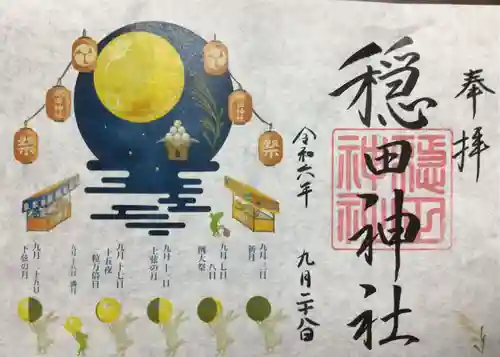 奉拝
穏田神社
穏田神社
令和六年 九月二十八日
祭
田神社
祭
九月三日
新月
九月七日
八日
例大祭
九月十一日
上弦の月
九月十七日
十五夜
九月十八日 満月
九月二十五日
下弦の月